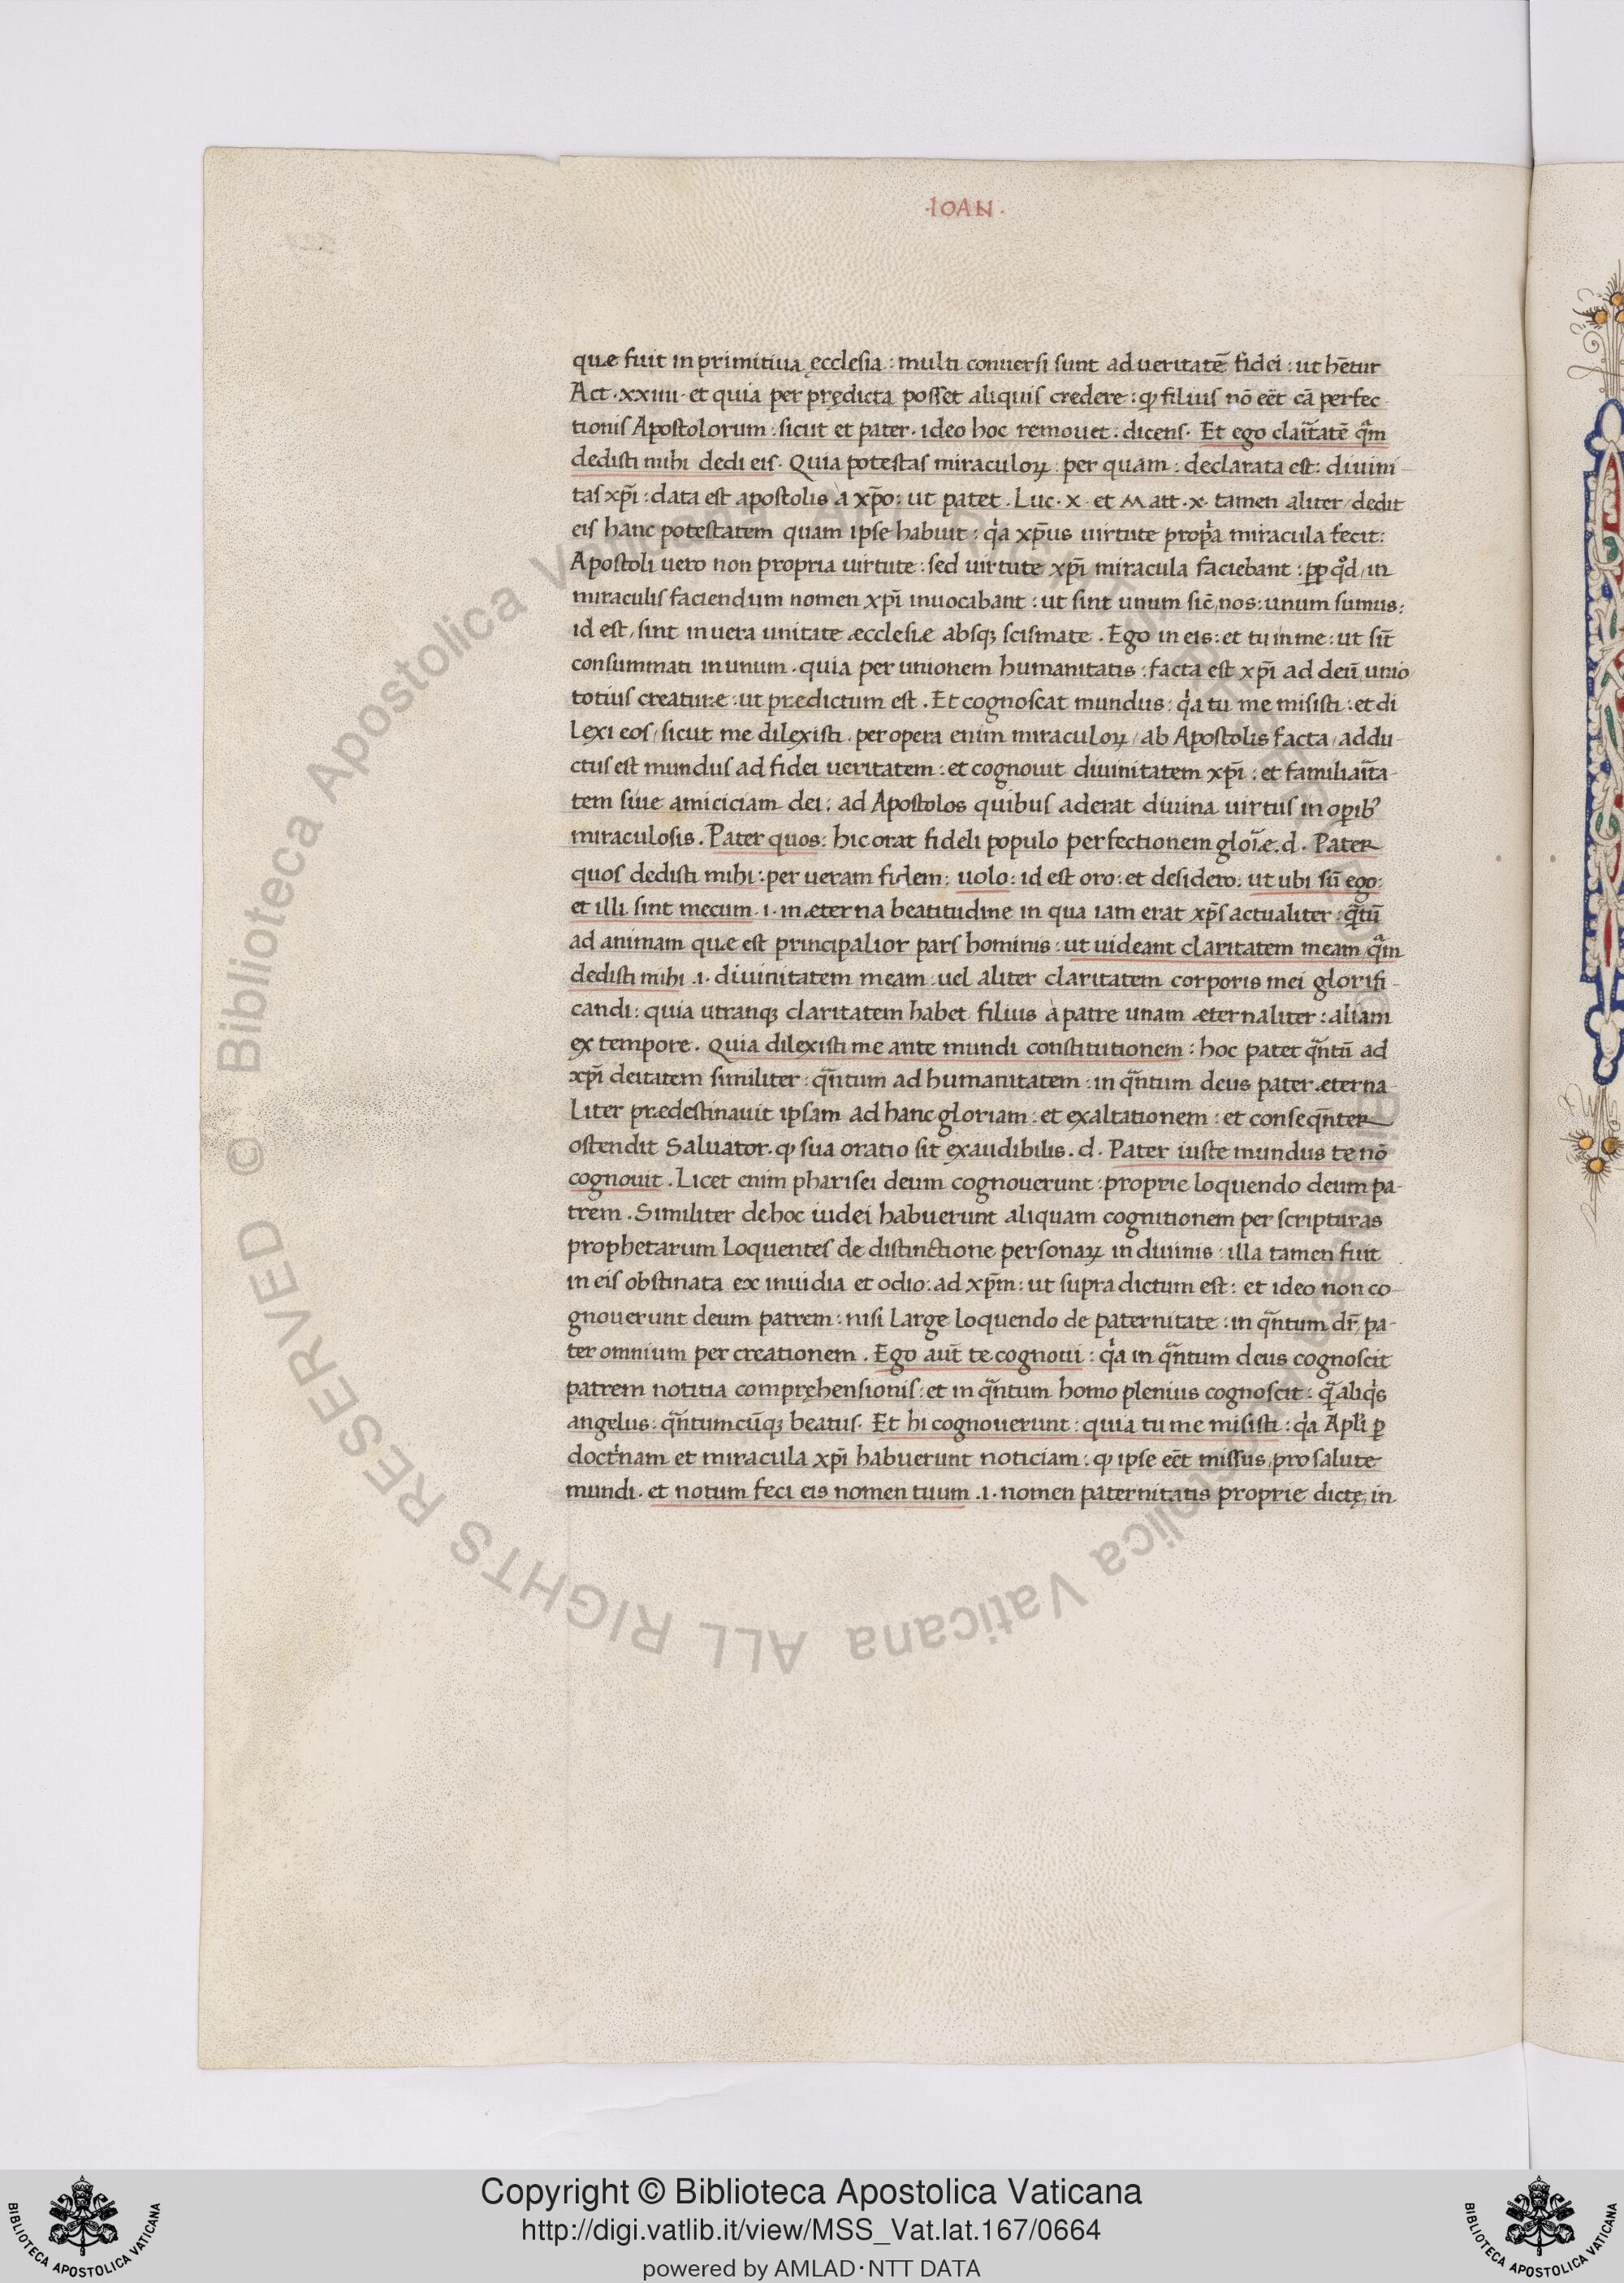 ·IOAN·
quæ fuit in primitiua ęcclesia : multi conuersi sunt ad ueritatē fidei : ut hētur
Act · xxiiii · et quia per prędicta posset aliquis credere : ꝙ filius nō eēt cā perfec
tionis Apostolorum : sicut et pater · ideo hoc remouet · dicens · Et ego claritatē quam
dedisti mihi dedi eis · Quia potestas miraculoꝝ : per quam : declarata est : diuini
tas xp̄i : data est apostolis à xp̄o : ut patet · Luc · x · et Matt · x · tamen aliter / dedit
eis hanc potestatem quam ipse habuit : qͥa xp̄us uirtute propͥa miracula fecit :
Apostoli uero non propria uirtute : sed uirtute xp̄i miracula faciebant : ꝓp qͦd / in
miraculis faciendum nomen xp̄i inuocabant : ut sint unum sic̄ / nos : unum sumus :
id est / sint in uera unitate æcclesiæ absqꝫ scismate . Ego in eis : et tu in me : ut sit̄
consummati in unum · quia per unionem humanitatis : facta est xp̄i ad deū / unio
totius creaturæ : ut prædictum est . Et cognoscat mundus : qͥa tu me misisti : et di
lexi eos / sicut me dilexisti · per opera enim miraculoꝝ / ab Apostolis facta / addu-
ctus est mundus ad fidei ueritatem : et cognouit diuinitatem xp̄i : et familiarita-
tem siue amiciciam dei : ad Apostolos quibus aderat diuina uirtus in oꝑibꝰ
miraculosis . Pater quos : hic orat fideli populo perfectionem gloīæ . d . Pater
quos dedisti mihi : per ueram fidem : uolo : id est oro : et desidero : ut ubi sū ego :
et illi sint mecum · i · in æterna beatitudine in qua iam erat xp̄s actualiter : qᷓtū
ad animam quæ est principalior pars hominis : ut uideant claritatem meam qᷓm
dedisti mihi · i · diuinitatem meam : uel aliter claritatem corporis mei glorifi-
candi : quia utranqꝫ claritatem habet filius à patre unam æternaliter : aliam
ex tempore . Quia dilexisti me ante mundi constitutionem : hoc patet qᷓntū ad
xp̄i deitatem similiter : qᷓntum ad humanitatem : in qᷓntum deus pater æterna
liter prædestinauit ipsam ad hanc gloriam : et exaltationem : et conseqn̄ter
ostendit Saluator · ꝙ sua oratio sit exaudibilis . d . Pater iuste mundus te nō
cognouit . Licet enim pharisei deum cognouerunt : proprie loquendo deum pa-
trem . Similiter de hoc iudei habuerunt aliquam cognitionem per scripturas
prophetarum loquentes de distinctione personaꝝ in diuinis : illa tamen fuit
in eis obstinata ex inuidia et odio : ad xp̄m : ut supra dictum est : et ideo non co-
gnouerunt deum patrem : nisi large loquendo de paternitate : in qᷓntum dr̄ / pa-
ter omnium per creationem . Ego aut̄ te cognoui : qͥa in qᷓntum deus cognoscit
patrem notitia compręhensionis : et in qᷓntum homo plenius cognoscit : qᷓ aliqͥs
angelus : qᷓntumcūqꝫ beatus . Et hi cognouerunt : quia tu me misisti : qͥa Apl̄i ꝑ
doctͥnam et miracula xp̄i habuerunt noticiam : ꝙ ipse eēt missus / pro salute
mundi . et notum feci eis nomen tuum · i · nomen paternitatis proprie dictę / in
Copyright © Biblioteca Apostolica Vaticana
http://digi.vatlib.it/view/MSS_Vat.lat.167/0664
powered by AMLAD·NTT DATA
BIBLIOTECA APOSTOLICA VATICANA
BIBLIOTECA APOSTOLICA VATICANA